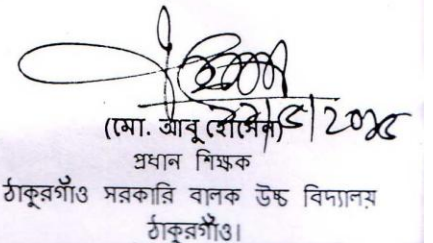 (মো. আবু হোসেন)
প্রধান শিক্ষক
ঠাকুরগাঁও সরকারি বালক উচ্চ বিদ্যালয়
ঠাকুরগাঁও।